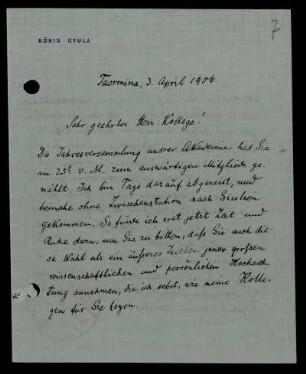 7
KÖNIG GYULA
Taormina, 3. April 1906.
Sehr geehrter Herr Kollege!
Die Jahresversammlung unsrer Akademie hat Sie
am 23t. v. M. zum auswärtigen Mitgliede ge-
wählt. Ich bin Tags darauf abgereist, und
beinahe ohne Zwischenstation nach Sizilien
gekommen. So finde ich erst jetzt Zeit und
Ruhe dazu, um Sie zu bitten, daß Sie auch die-
se Wahl als ein äußeres Zeichen jener großen
wissenschaftlichen und persönlichen Hochach-
tung annehmen, die ich selbst, wie meine Kolle-
gen für Sie hegen.